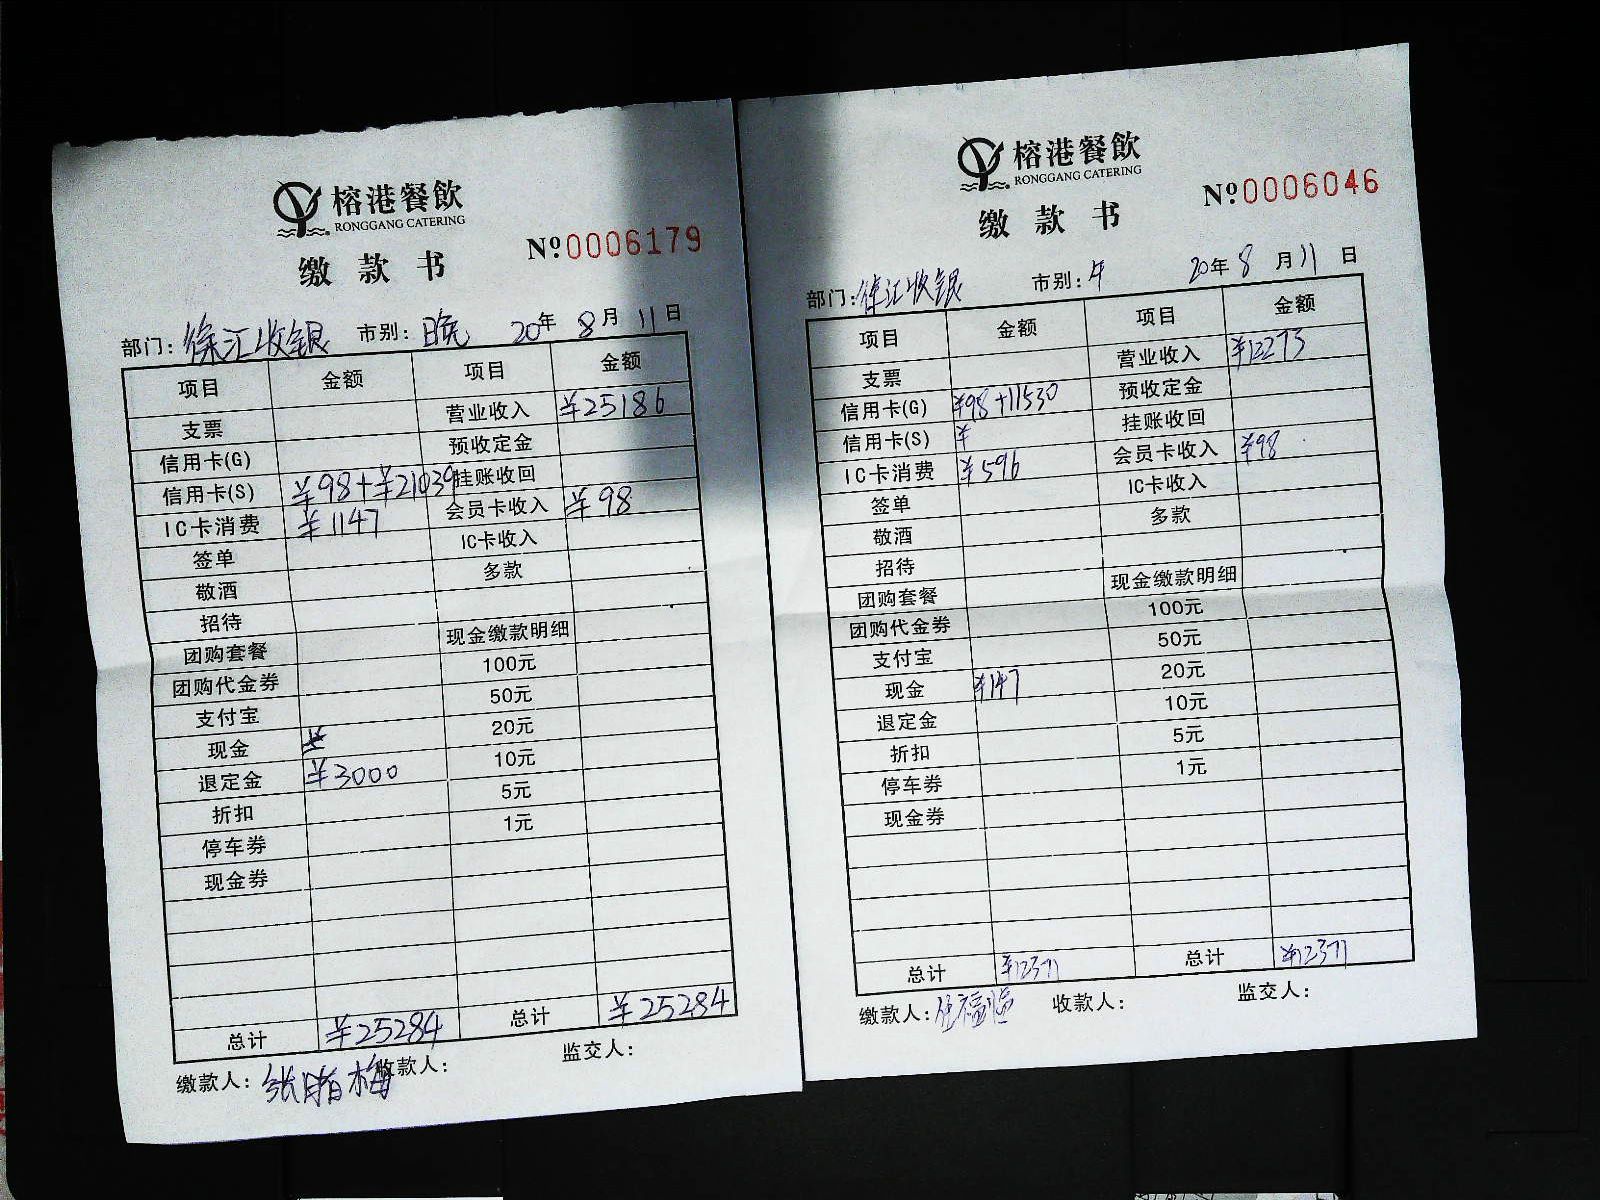 榕港餐飲
RONGGANG CATERING
缴款书
№0006179
部门：徐汇收银 市别：晚 20年8月11日
项目 金额 项目 金额
支票 营业收入 ¥25186
信用卡(G) 预收定金
信用卡(S) ¥98+¥21039 挂账收回
IC卡消费 ¥1147 会员卡收入 ¥98
签单 IC卡收入
敬酒 多款
招待
团购套餐 现金缴款明细
团购代金券 100元
支付宝 50元
现金 ¥ 20元
退定金 ¥3000 10元
折扣 5元
停车券 1元
现金券
总计 ¥25284 总计 ¥25284
缴款人：张 梅 收款人： 监交人：
榕港餐飲
RONGGANG CATERING
缴款书
№0006046
部门：徐汇收银 市别：午 20年8月11日
项目 金额 项目 金额
支票 营业收入 ¥12273
信用卡(G) ¥98+11530 预收定金
信用卡(S) ¥ 挂账收回
IC卡消费 ¥596 会员卡收入 ¥98
签单 IC卡收入
敬酒 多款
招待
团购套餐 现金缴款明细
团购代金券 100元
支付宝 50元
现金 ¥147 20元
退定金 10元
折扣 5元
停车券 1元
现金券
总计 ¥12371 总计 ¥12371
缴款人： 收款人： 监交人：